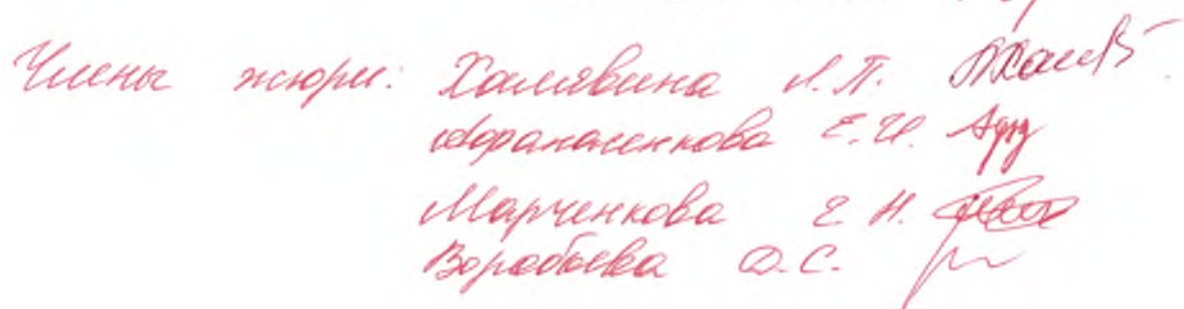 Члены жюри: Халявина Л.П.
Афанасенкова Е.И.
Марченкова Е.Н.
Воробьева О.С.